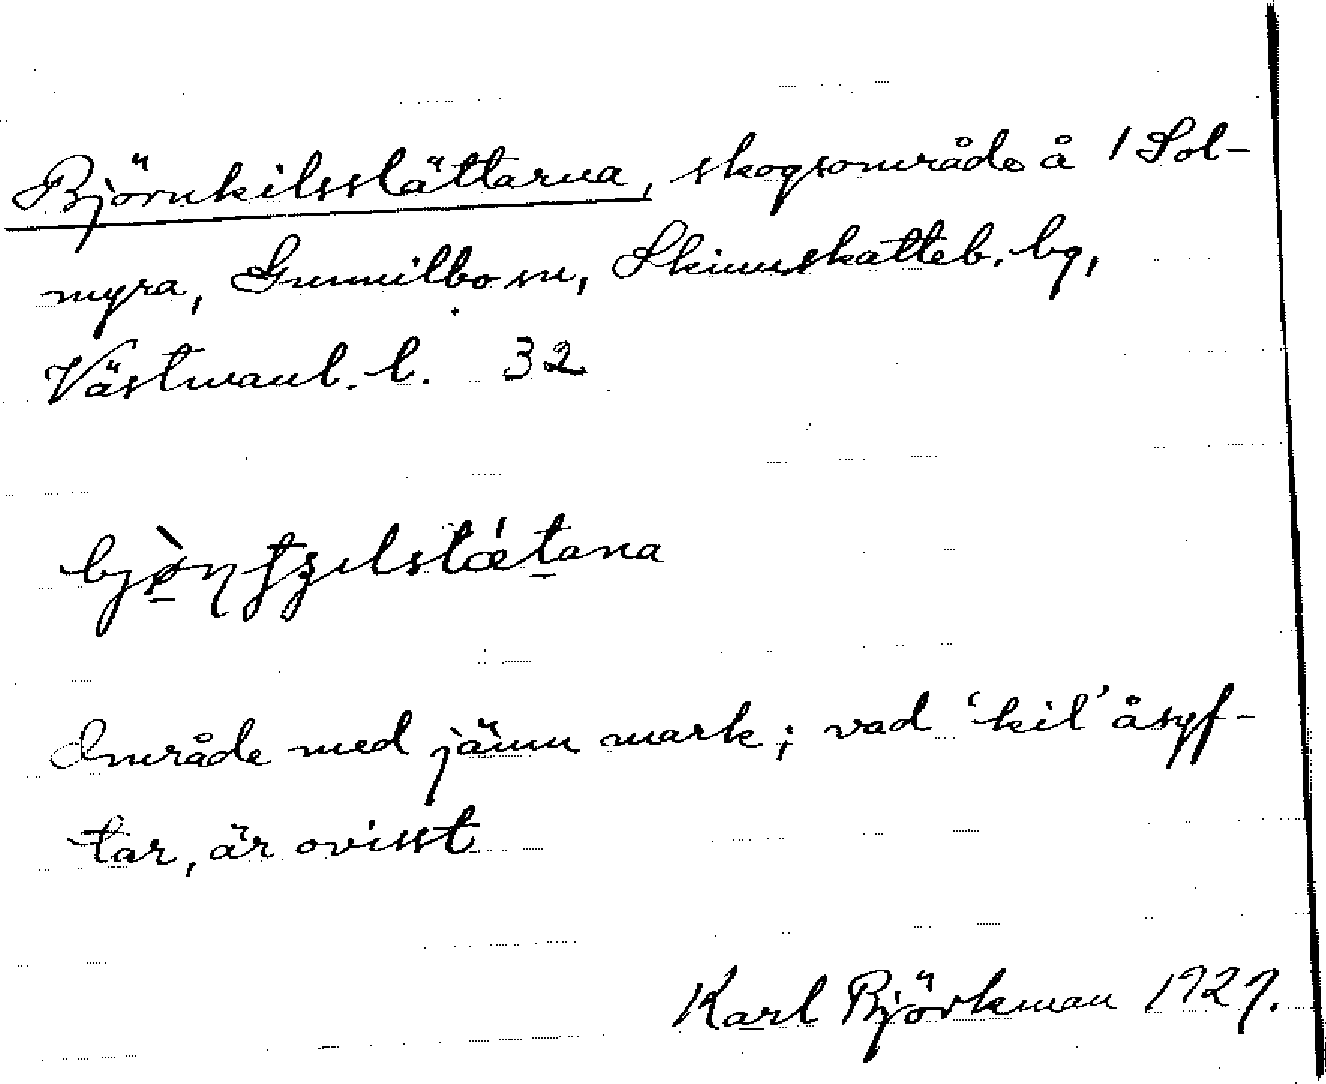 Björnkilsslättarna, skogsområde å 1 Sol-
myra, Gunnilbo sn, Skinnskatteb. bg,
Västmanl. l. 32
Område med jämn mark; vad 'kil' åsyf-
tar, är ovisst
Karl Björkman 1927.